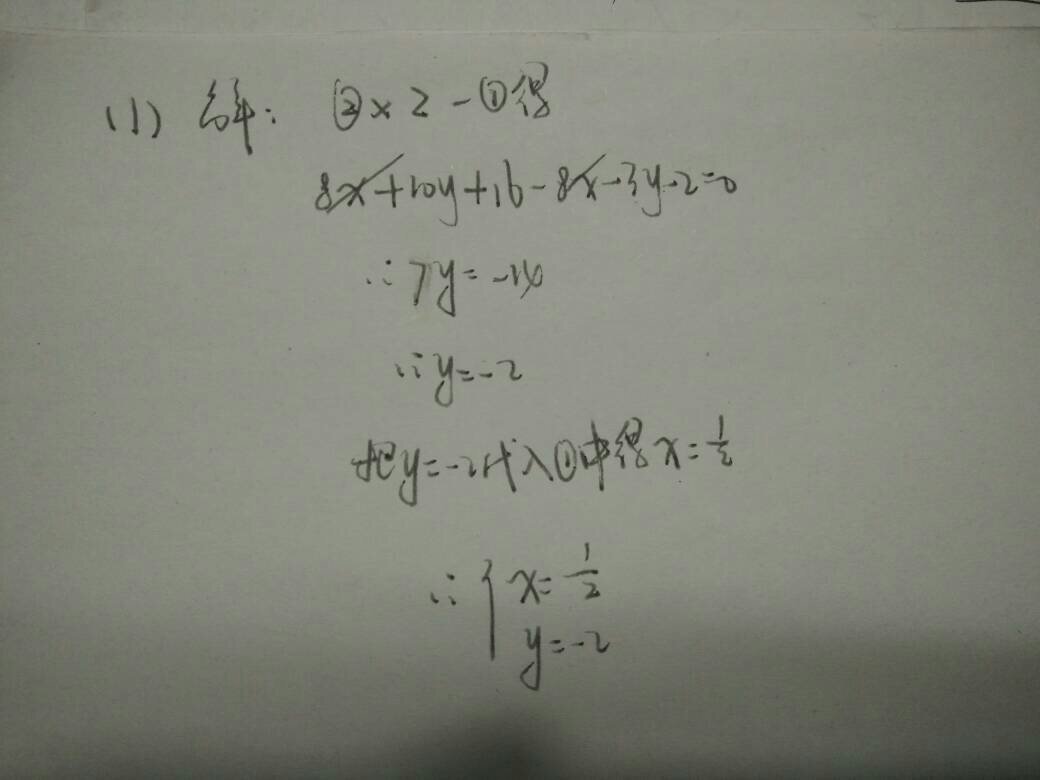 (1) 解: ②×2-①得
8x+10y+16-8x-3y-2=0
∴7y=-14
∴y=-2
把y=-2代入①中得x=1/2
∴{x=1/2
y=-2